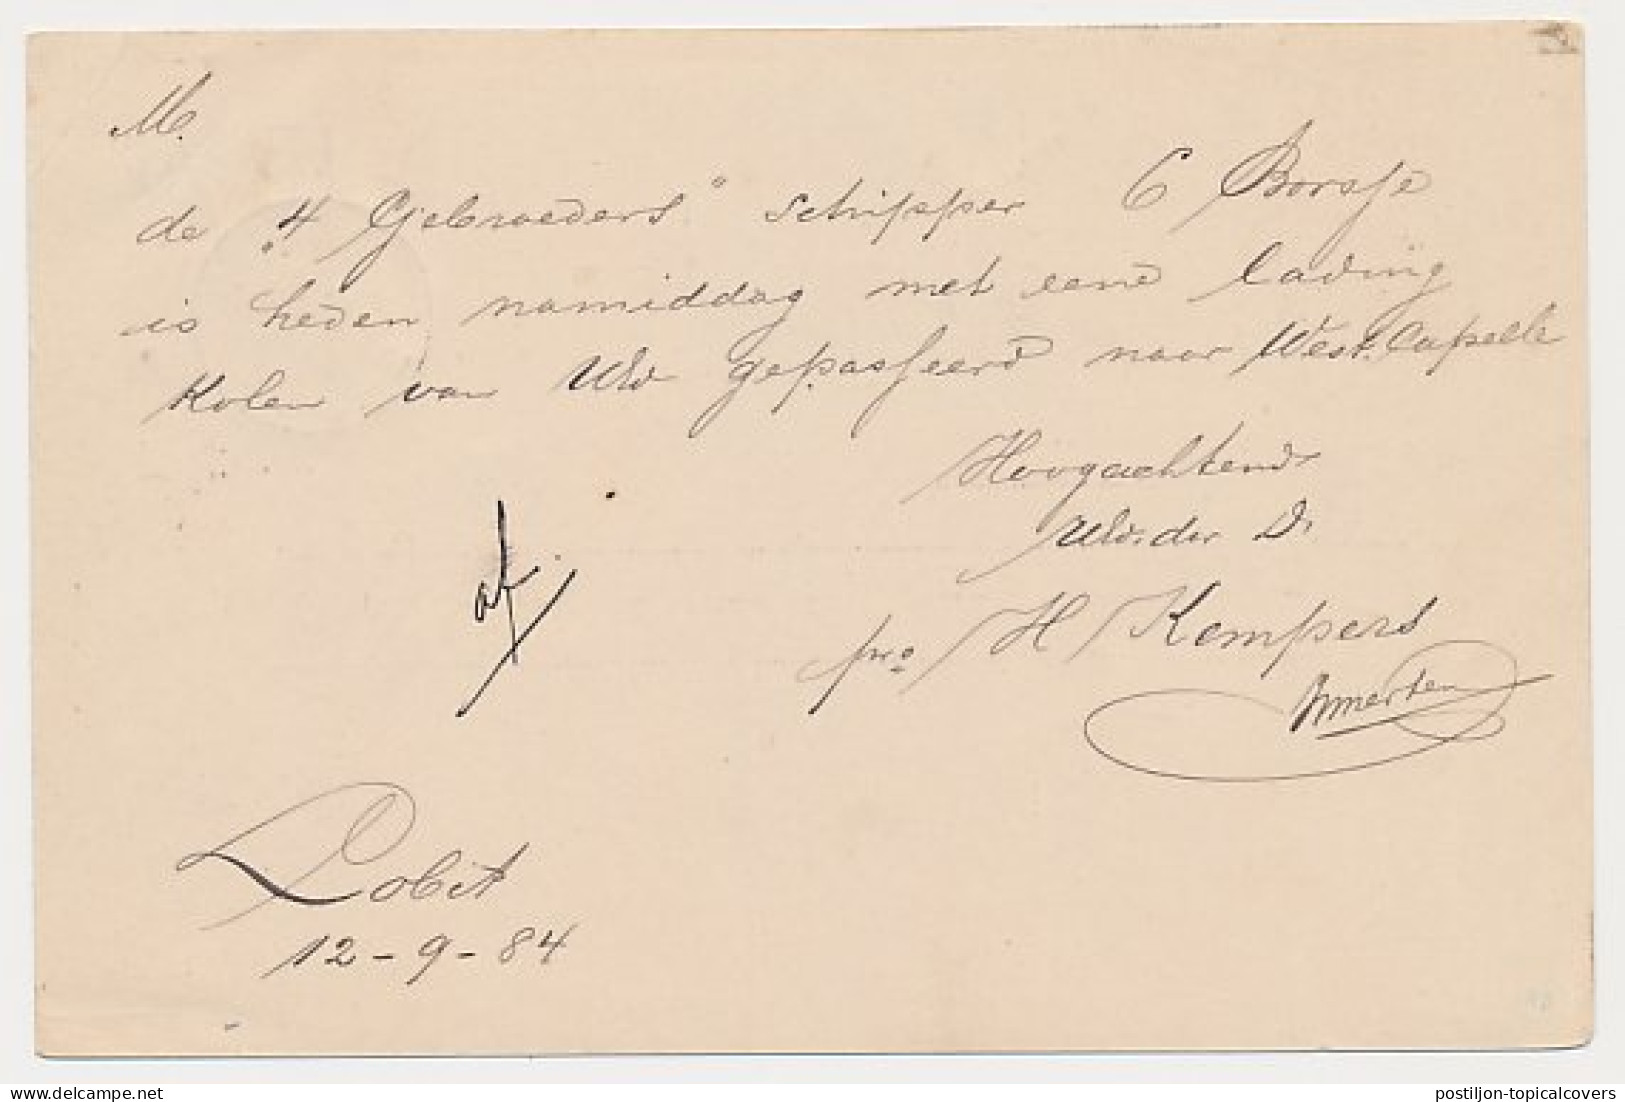 M.
de "4 Gebroeders" schipper C Borsje
is heden namiddag met eene lading
Kolen van UW gepasseerd naar West. Capelle
Hoogachtend
UW. der D.
pro H Kempers
af.
Lobit
12-9-84
postiljon-topicalcovers